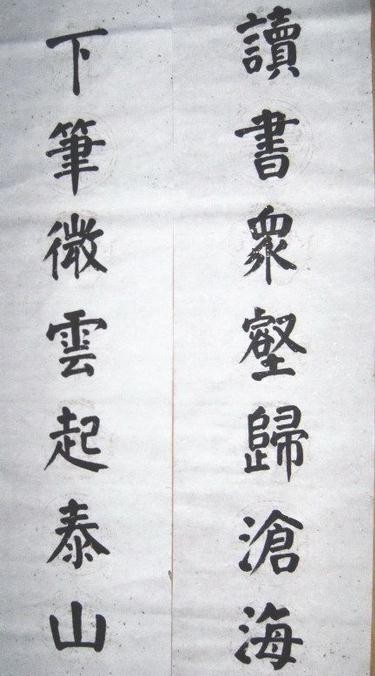 讀書衆壑歸滄海
下筆微雲起泰山